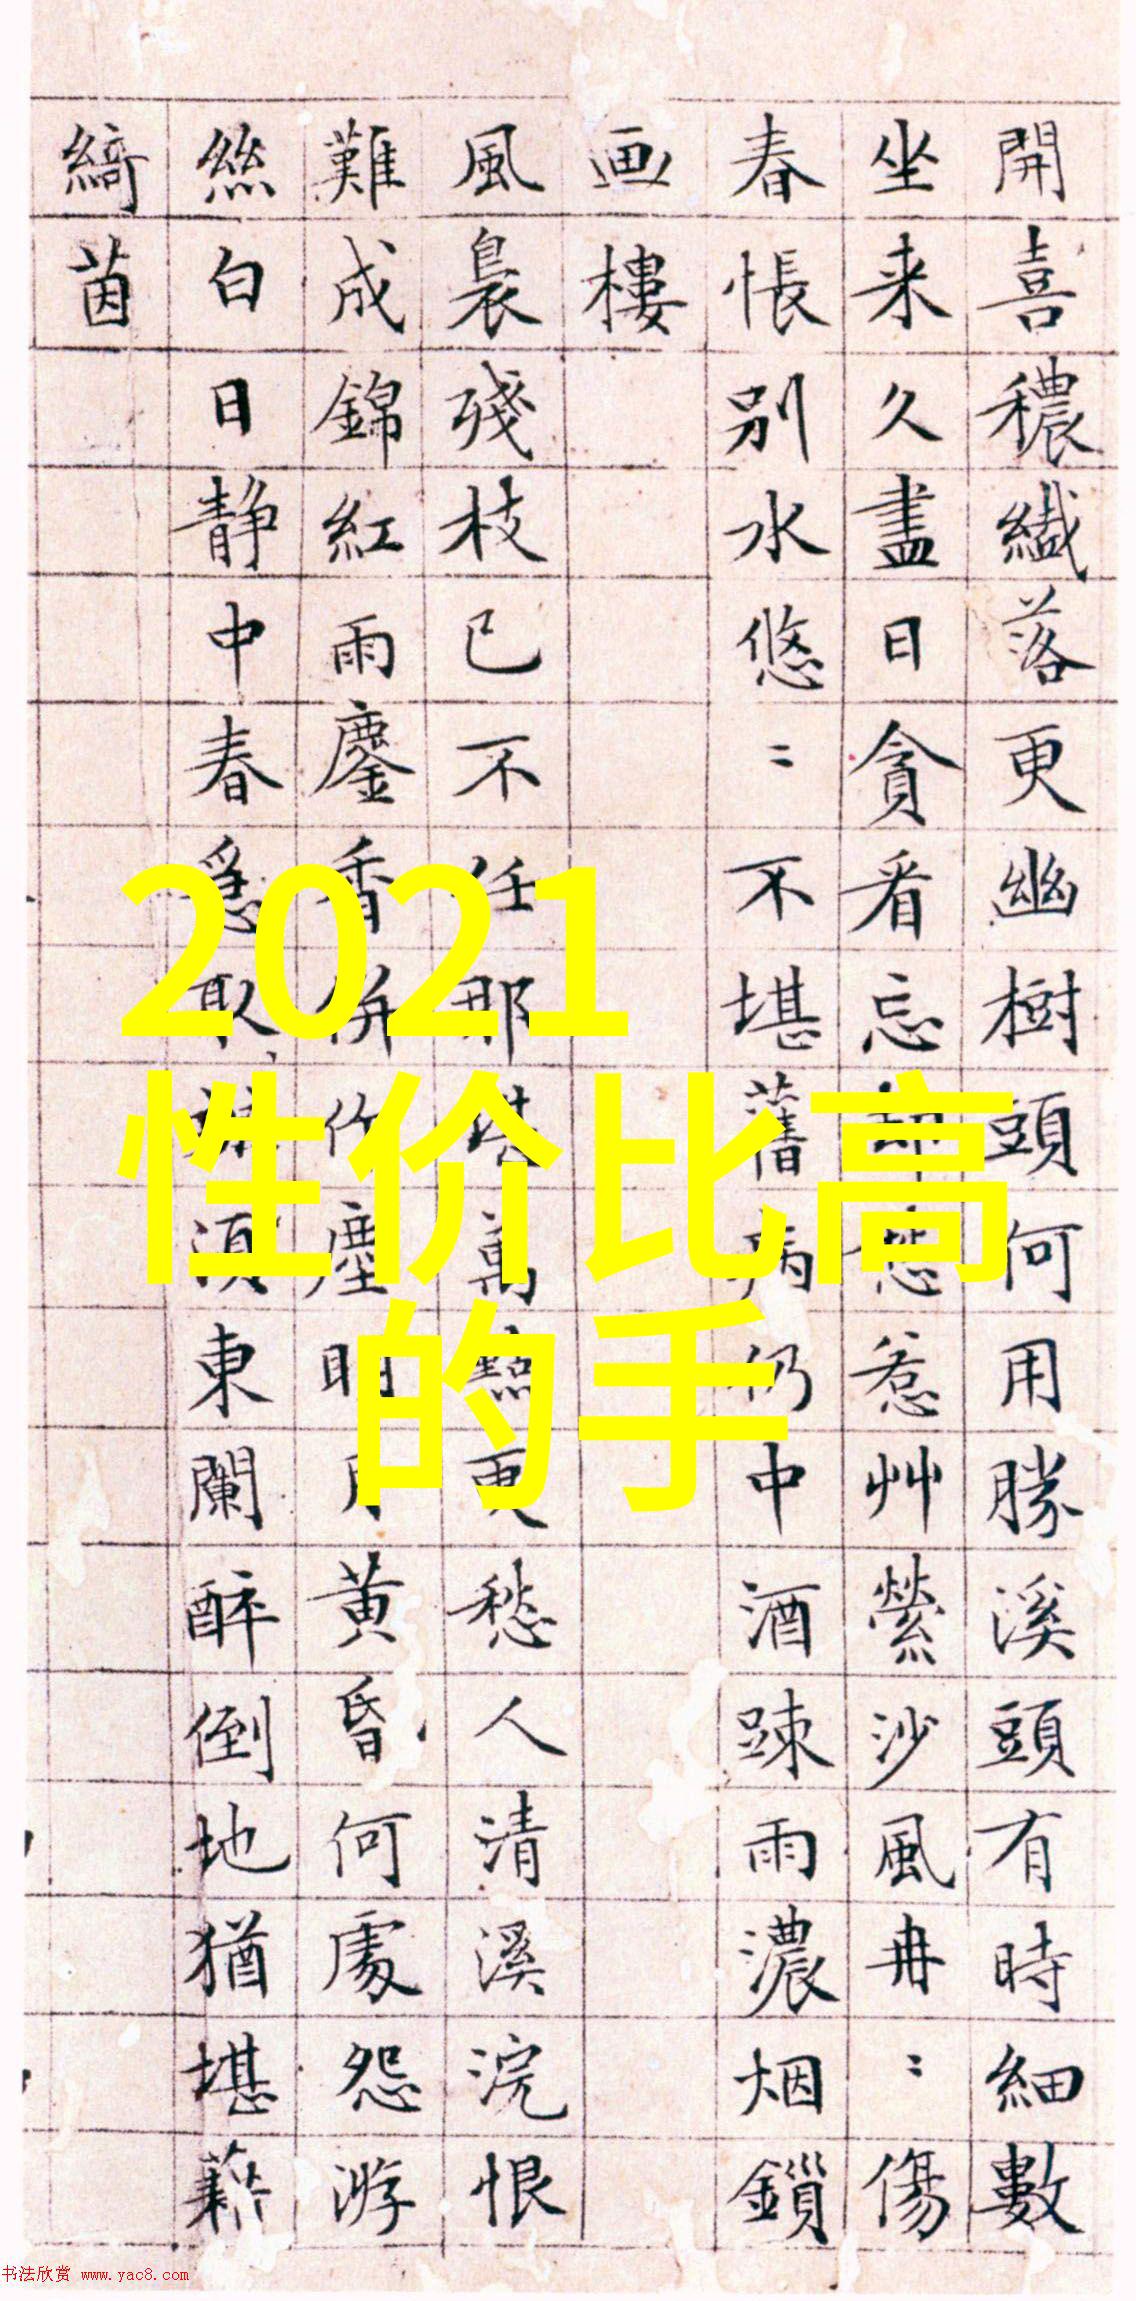 開喜穠纎落更幽樹頭何用勝溪頭有時細數
坐来久盡日貪看忘却愁惹艸縈沙風冉〻傷
春悵別水悠〻不堪舊病仍中酒踈雨濃烟鎖
画樓
風裊殘枝已不任那堪萬點更愁人清溪浣恨
難成錦紅雨鏖香併作塵明月黄昏何處怨游
絲白日靜中春急取須東闌醉倒地猶堪藉
綺茵
2021
性价比高
的手
书法欣赏 www.yac8.com